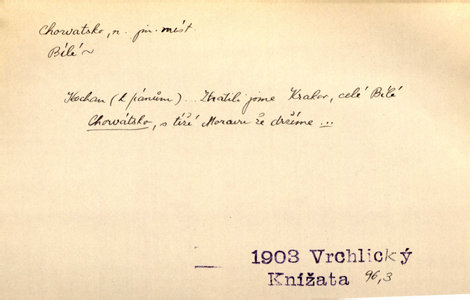 Chorvatsko, n. jm. míst
Bílé ~
Kochan (k pánům)... Ztratili jsme Krakov, celé Bílé
Chorvátsko, s tíží Moravu že držíme ...
1903 Vrchlický
Knížata 96,3